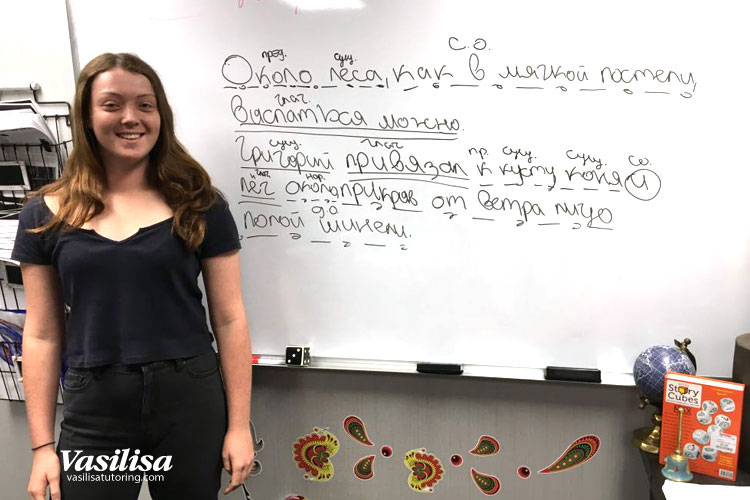 С.О.
пред. сущ.
Около леса, как в мягкой постели,
глаг.
выспаться можно.
сущ. глаг. пр. сущ. сущ. со.
Григорий привязал к кусту коня и
глаг. нар.
лёг около прикрыв от ветра лицо
полой шинели.
Story
Cubes
Vasilisa
vasilisatutoring.com